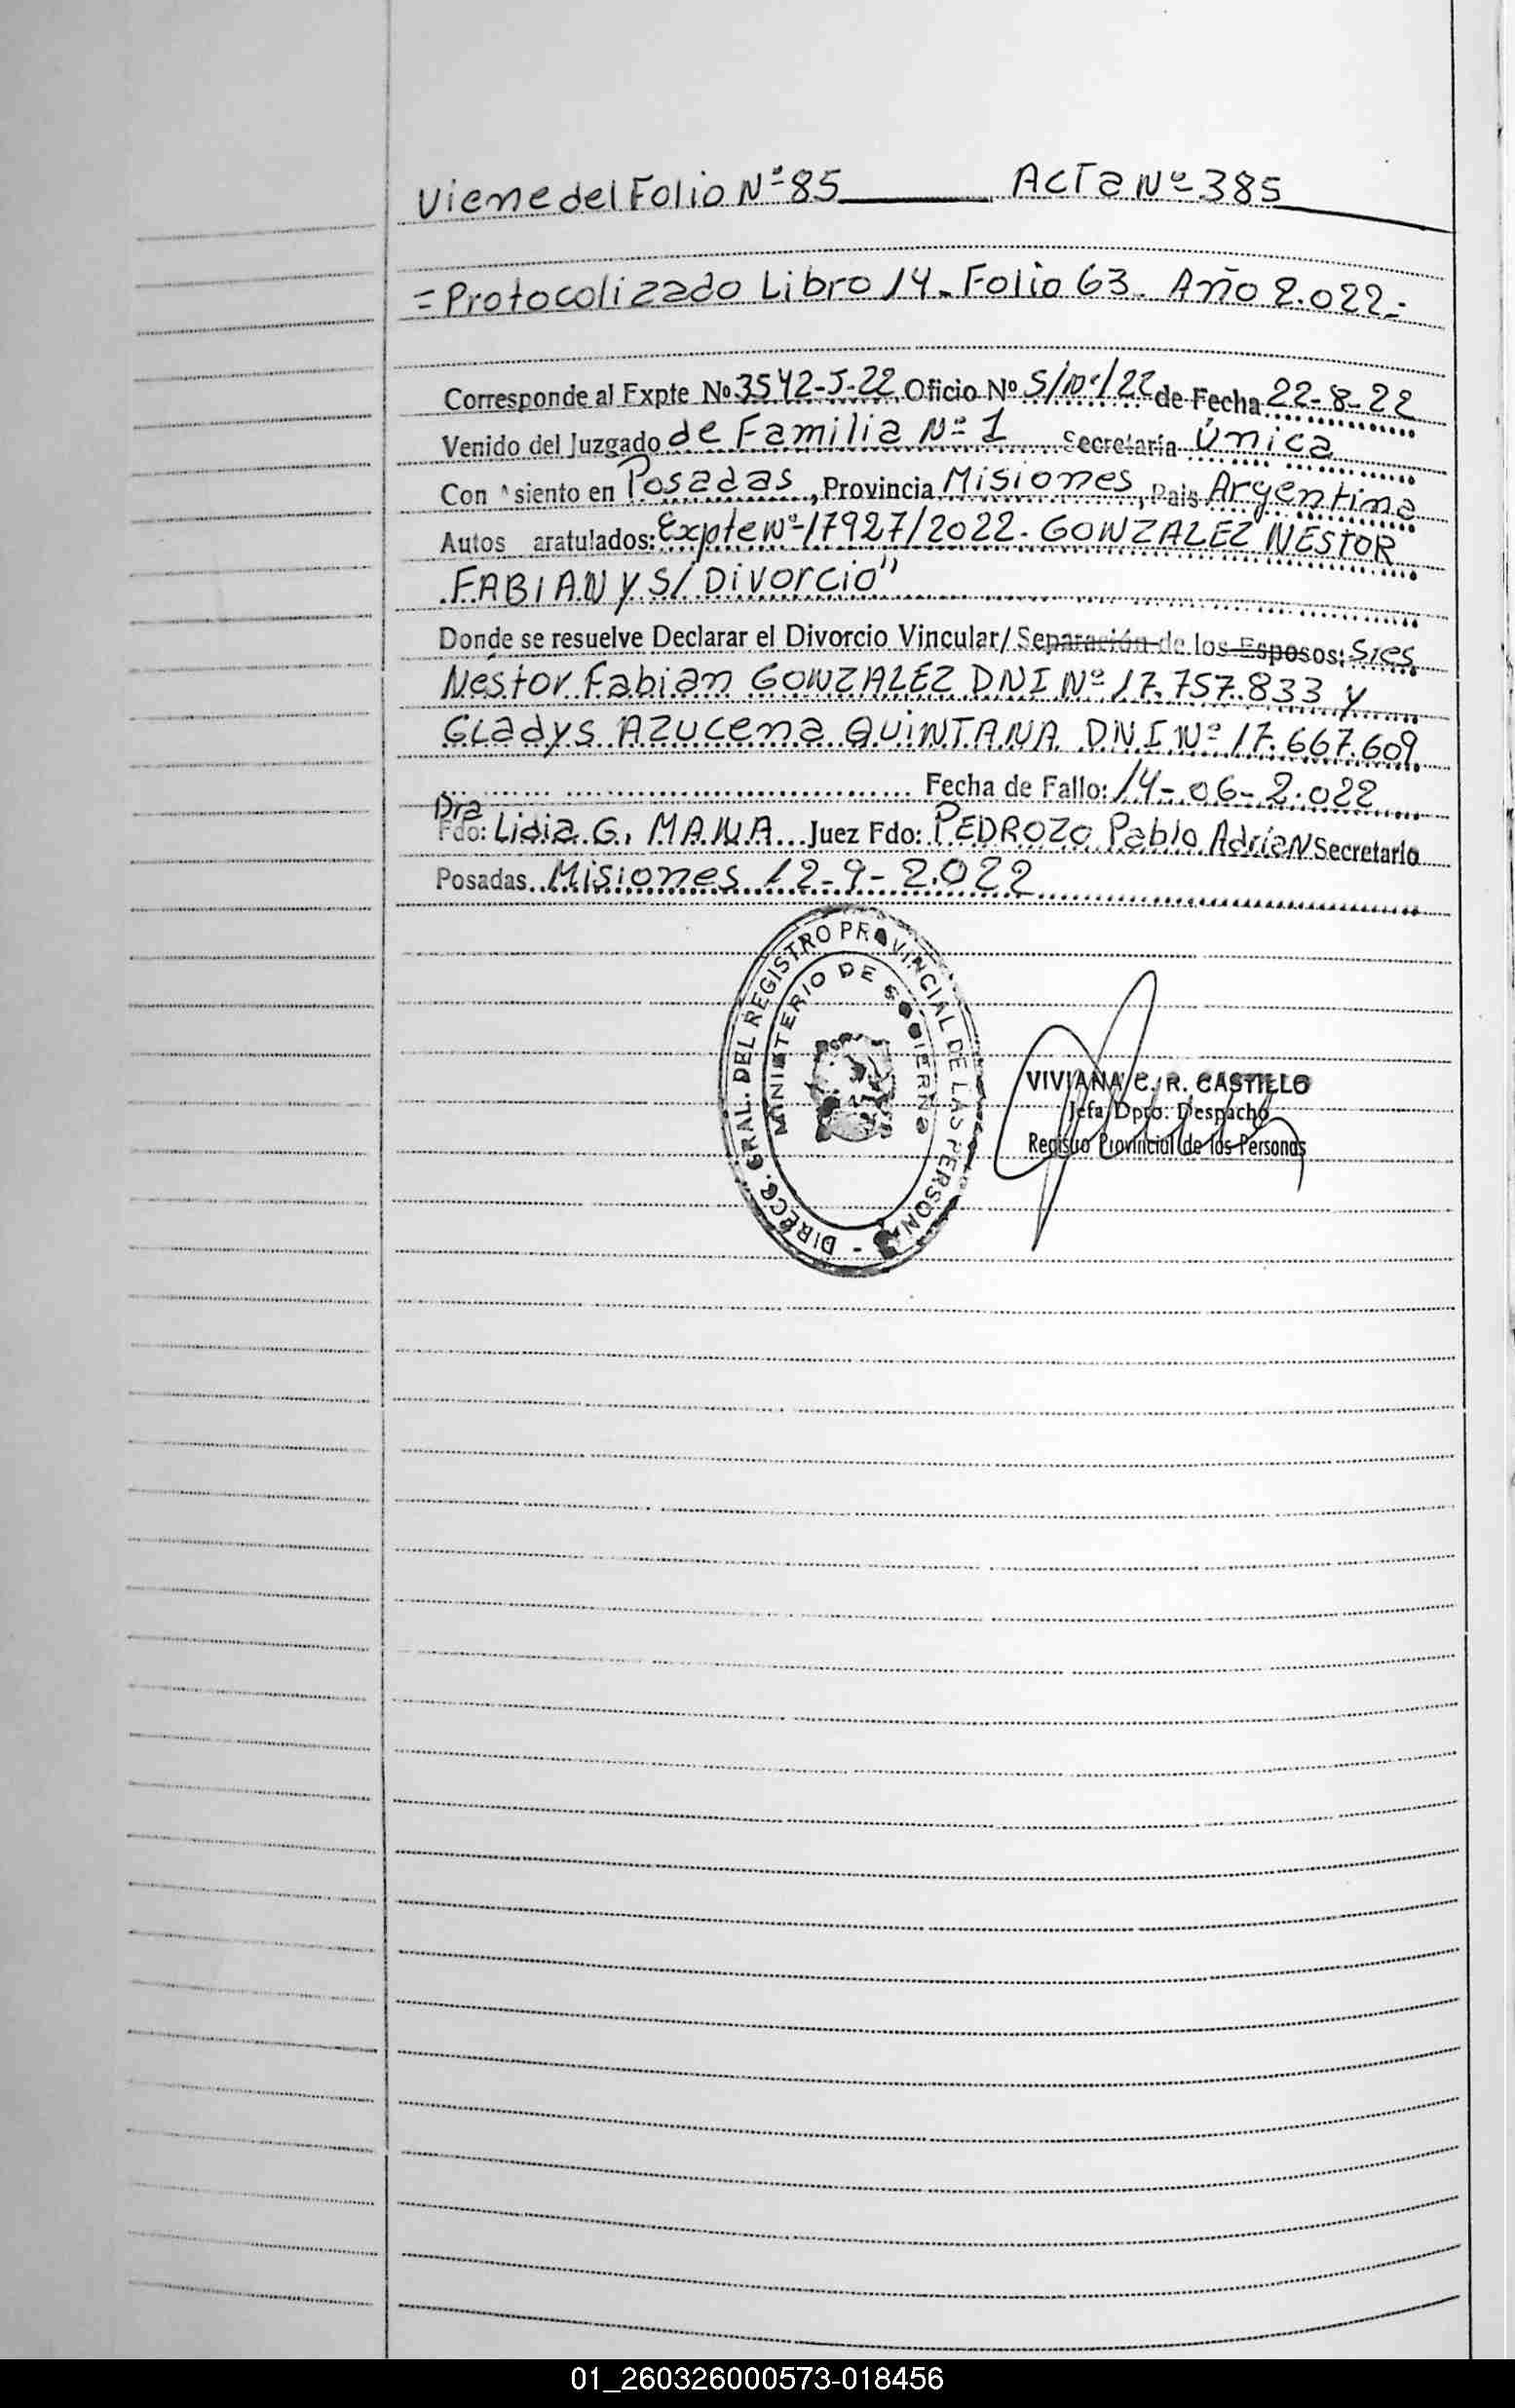 Viene del Folio Nº 85 Acta Nº 385
= Protocolizado Libro 14. Folio 63. Año 2.022.-
Corresponde al Expte No 3542-J-22 Oficio Nº S/Nº/22 de Fecha 22-8-22
Venido del Juzgado de Familia Nº 1 Secretaría Única
Con Asiento en Posadas, Provincia Misiones, País Argentina
Autos aratulados: Expte Nº 17927/2022. GONZALEZ NESTOR
FABIAN y S/ Divorcio"
Donde se resuelve Declarar el Divorcio Vincular/ Separación de los Esposos: Sres
Néstor Fabian GONZALEZ DNI Nº 17.757.833 y
Gladys Azucena QUINTANA DNI Nº 17.667.609
Fecha de Fallo: 14-06-2.022
Dra
Fdo: Lidia G. MANA Juez Fdo: PEDROZO Pablo Adrian Secretario
Posadas Misiones 12-9-2.022
DIRECC. GRAL. DEL REGISTRO PROVINCIAL DE LAS PERSONAS -
MINISTERIO DE GOBIERNO
VIVIANA C. R. CASTILLO
Jefa Dpto. Despacho
Registro Provincial de las Personas
01_260326000573-018456